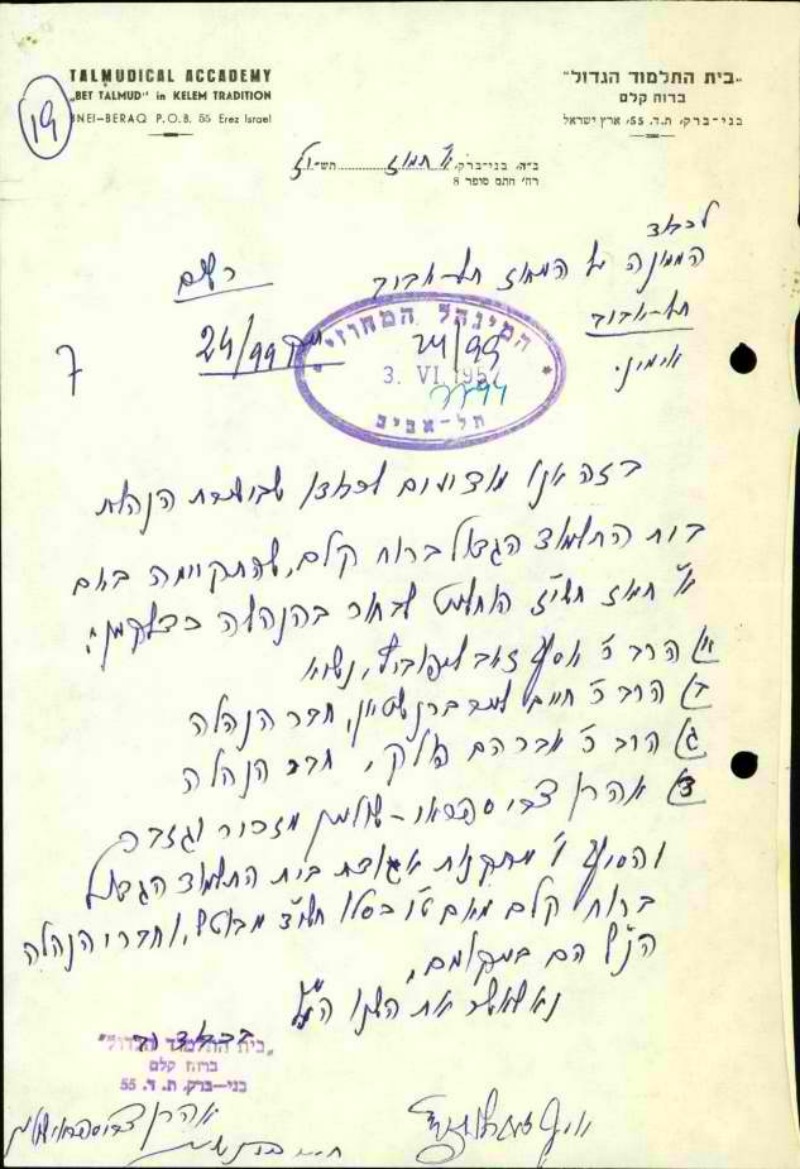 TALMUDICAL ACCADEMY
„BET TALMUD" in KELEM TRADITION
BNEI-BERAQ P.O.B. 55 Erez Israel
"בית התלמוד הגדול"
ברוח קלם
בני-ברק, ת.ד. 55, ארץ ישראל
19
ב"ה, בני-ברק, א' תמוז תשי"ז
רח' חתם סופר 8
לכבוד
הממונה על המחוז תל-אביב
תל-אביב
רשום
24/99
המינהל המחוזי
24/99
3. VI. 1957
תל-אביב
7
א.נ.
בזה אנו מודיעים לכבודו שבישיבת הנהלת
בית התלמוד הגדול ברוח קלם, שהתקיימה ביום
א' תמוז תשי"ז הוחלט לבחור בהנהלה כדלקמן:
א) הרב ר' אסף זאב ליבוביץ, נשיא
ב) הרב ר' חיים ברנשטיין, חבר הנהלה
ג) הרב ר' אברהם, חבר הנהלה
ד) אהרן צבי שולמן מזכיר וגזבר
והסעיף מתקנות אגודת בית התלמוד הגדול
ברוח קלם מיום ט"ו כסלו מבוטל, וחברי הנהלה
הנ"ל הם במקומם.
נא לאשר את השנוי הנ"ל
בכבוד רב
"בית התלמוד הגדול"
ברוח קלם
בני-ברק, ת. ד. 55